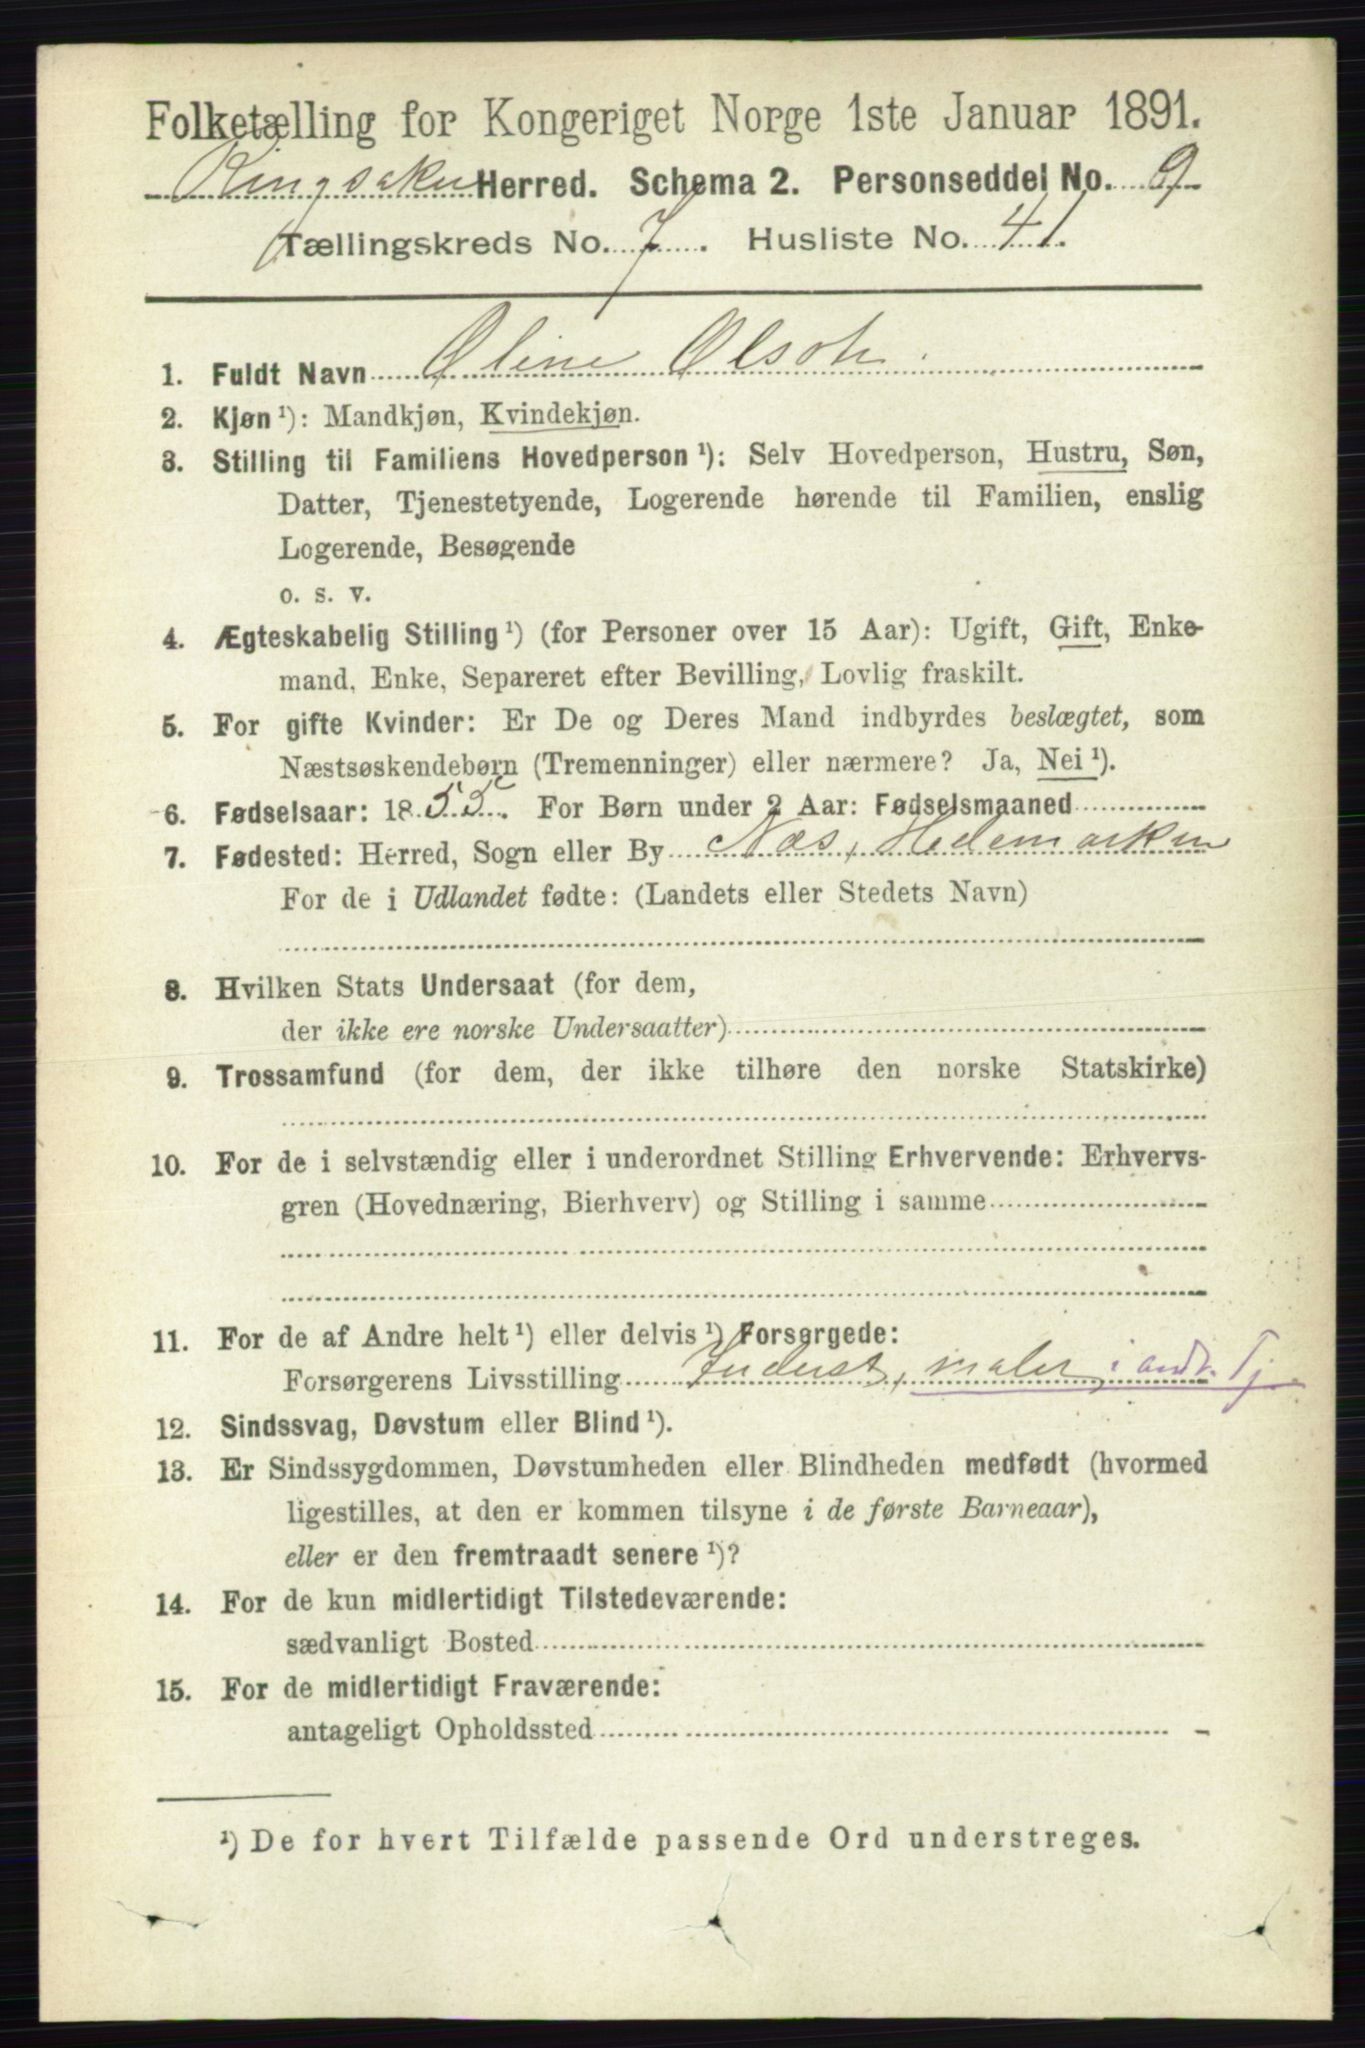 Folketælling for Kongeriget Norge 1ste Januar 1891.
Ringsaker Herred. Schema 2. Personseddel No. 9
Tællingskreds No. 7. Husliste No. 41.
1. Fuldt Navn Oline Olsen.
2. Kjøn¹): Mandkjøn, Kvindekjøn.
3. Stilling til Familiens Hovedperson¹): Selv Hovedperson, Hustru, Søn,
Datter, Tjenestetyende, Logerende hørende til Familien, enslig
Logerende, Besøgende
o. s. v.
4. Ægteskabelig Stilling¹) (for Personer over 15 Aar): Ugift, Gift, Enke-
mand, Enke, Separeret efter Bevilling, Lovlig fraskilt.
5. For gifte Kvinder: Er De og Deres Mand indbyrdes beslægtet, som
Næstsøskendebørn (Tremenninger) eller nærmere? Ja, Nei¹).
6. Fødselsaar: 1855. For Børn under 2 Aar: Fødselsmaaned
7. Fødested: Herred, Sogn eller By Næs, Hedemarken
For de i Udlandet fødte: (Landets eller Stedets Navn)
8. Hvilken Stats Undersaat (for dem,
der ikke ere norske Undersaatter)
9. Trossamfund (for dem, der ikke tilhøre den norske Statskirke)
10. For de i selvstændig eller i underordnet Stilling Erhvervende: Erhvervs-
gren (Hovednæring, Bierhverv) og Stilling i samme
11. For de af Andre helt¹) eller delvis¹) Forsørgede:
Forsørgerens Livsstilling Inderst, maler i andr. Tj.
12. Sindssvag, Døvstum eller Blind¹).
13. Er Sindssygdommen, Døvstumheden eller Blindheden medfødt (hvormed
ligestilles, at den er kommen tilsyne i de første Barneaar),
eller er den fremtraadt senere¹)?
14. For de kun midlertidigt Tilstedeværende:
sædvanligt Bosted
15. For de midlertidigt Fraværende:
antageligt Opholdssted
¹) De for hvert Tilfælde passende Ord understreges.